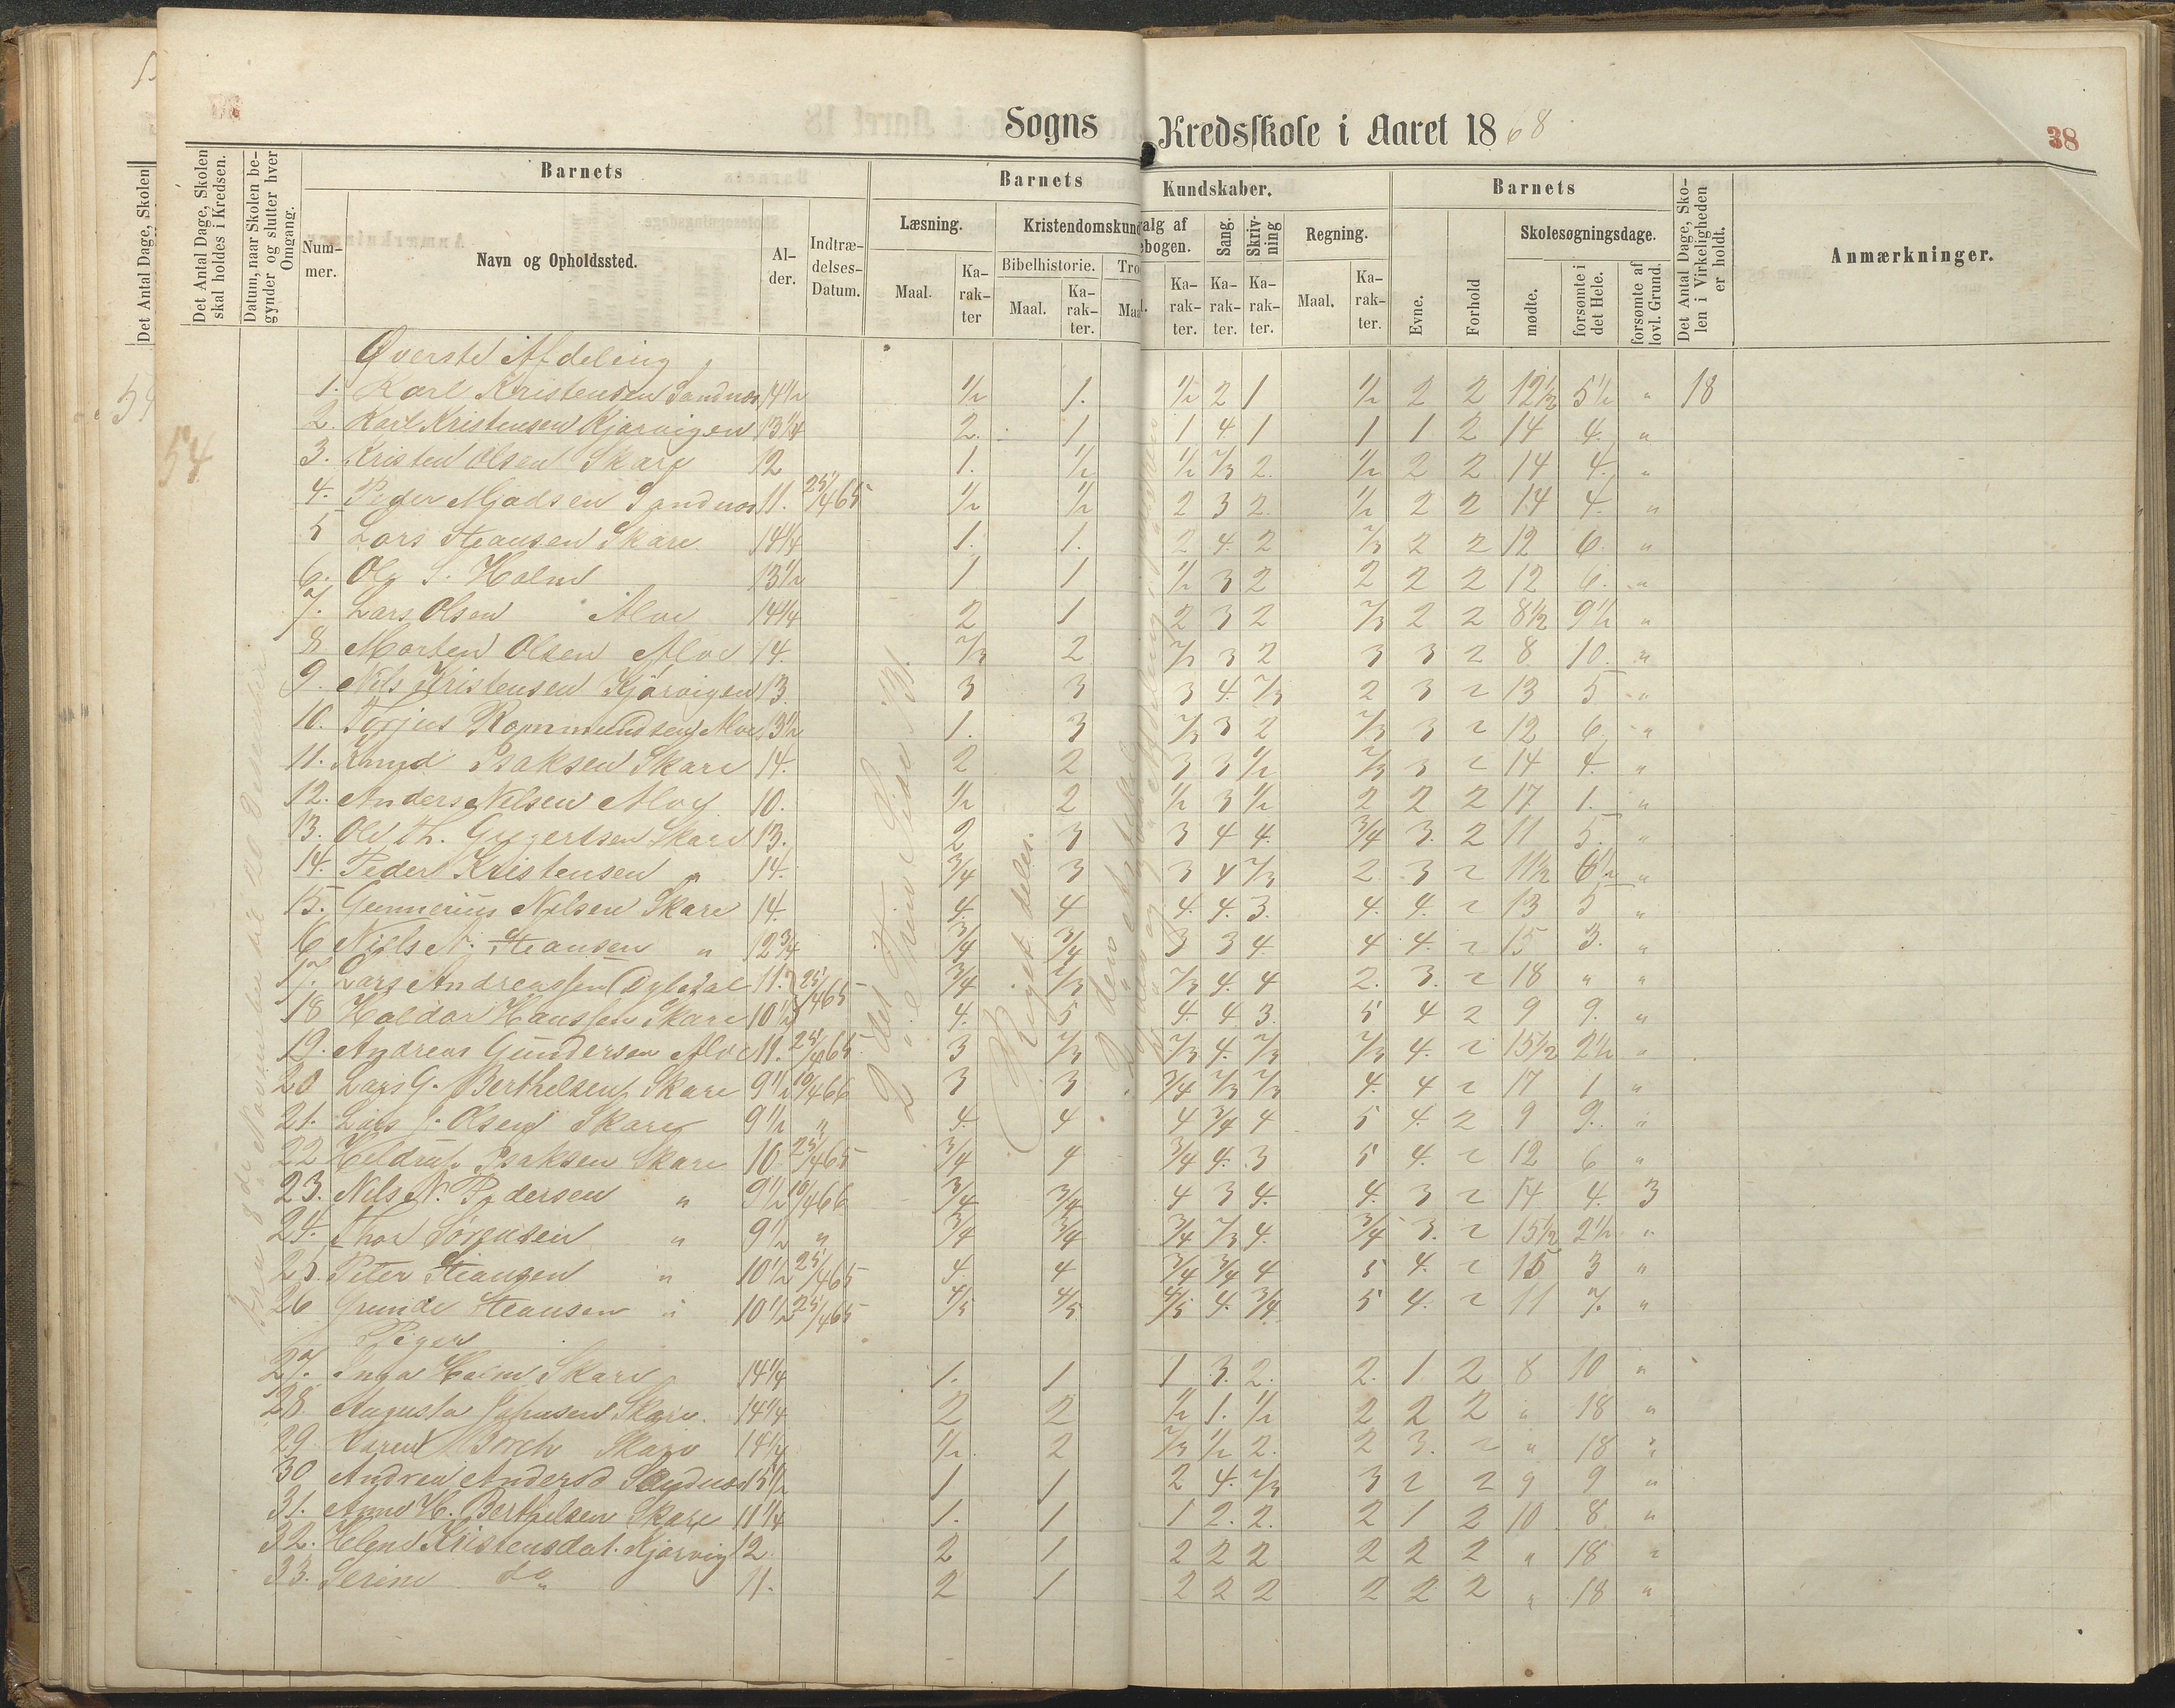 Sogns Kredsskole i Aaret 1868
38
Det Antal Dage, Skolen
Det Antal Dage, Skolen skal holdes i Kredsen.
Datum, naar Skolen begynder og slutter hver Omgang.
Barnets
Num-mer.
Navn og Opholdssted.
Al-der.
Indtræ-delses-Datum.
Barnets Kundskaber.
Læsning.
Maal.
Ka-rak-ter
Kristendomskund
Bibelhistorie.
Maal.
Ka-rak-ter.
Tro
Maal.
alg af
ebogen.
Ka-rak-ter.
Sang.
Ka-rak-ter.
Skriv-ning
Ka-rak-ter.
Regning.
Maal.
Ka-rak-ter.
Barnets
Evne.
Forhold
Skolesøgningsdage.
mødte.
forsømte i det Hele.
forsømte af lovl. Grund.
Det Antal Dage, Sko-len i Virkeligheden er holdt.
Anmærkninger.
54
Øverste Afdeling
1. Karl Kristensen Sandnes 14 1/2 1/2 1. 1/2 2 1 1/2 2 2 12 1/2 5 1/2 " 18
2. Karl Kristensen Kjørvigen 13 1/4 2. 1 1 4 1 1 1 2 14 4. "
3. Kristen Olsen Skare 12 1. 1/2 1/2 2/3 2. 1/2 2 2 14 4. "
4. Peder Madsen Sandnes 11. 25/4 65 1/2 1/2 2 3 2. 1/2 2 2 14 4. "
5 Lars Steansen Skare 14 1/4 1. 1. 2 4. 2 2/3 2 2 12 6. "
6. Ole S. Holm 13 1/2 1 1 1/2 3 2 2 2 2 12 6. "
7. Lars Olsen Alve 14 1/4 2 1 2 3 2 2/3 2 2 8 1/2 9 1/2 "
8 Morten Olsen Alve 14. 2/3 2 2/3 3 2 3 3 2 8 10. "
9. Nils Kristensen Kjørvigen 13. 3 3 3 4. 2/3 2 3 2 13 5 "
10. Torjus Rommundsen Alve 13 1/2 1. 3 2/3 3 2 2/3 3 2 12 6. "
11. Knud Isaksen Skare 14. 2 2 3 3 1/2 2/3 3 2 14 4. "
12. Anders Nilsen Alve 10. 1/2 2 1/2 3 1/2 2 2 2 17 1. "
13. Ole Th. Gregertsen Skare 13. 2 3 3 4 4. 3/4 3. 2 11 5. "
14. Peder Kristensen " 14. 3/4 3 3 4 2/3 2. 3 2 11 1/2 6 1/2 "
15. Gunnerius Nilsen Skare 14. 4. 4 4. 4. 3. 4. 4. 2 13 5 "
16 Niels N. Steansen " 12 3/4 3/4 3/4 3 3 4 4 4. 2 15 3. "
17. Lars Andreassen 11. 25/4 65 3/4 2/3 2/3 4. 4 2. 3. 2 18 " "
18 Haldor Hanssen Skare 10 1/2 4. 5 4. 4 3. 5 4 2 9 9. "
19. Andreas Gundersen Alve 11. 25/4 65 3 2/3 2/3 4. 2/3 2/3 4. 2 15 1/2 2 1/2 "
20 Lars G. Berthelsen Skare 9 1/2 10/4 66 3 3 3/4 2/3 2/3 4. 4 2 17 1 "
21. Lars J. Olsen Skare 9 1/2 " 4. 4 4 3/4 4 5 4. 2 9 9. "
22 Isaksen Skare 10 25/4 65 3/4 4 3/4 4. 3 5 4. 2 12 6 "
23. Nils N. Pedersen " 9 1/2 10/4 66 3/4 3/4 4 3 4. 4. 3 2 14 4. 3
24. Thor Sørensen " 9 1/2 " 3/4 3/4 3/4 2/3 4. 3/4 3. 2 15 1/2 2 1/2 "
25. Peter Steansen " 10 1/2 25/4 65 4. 4 3/4 3/4 4 5 4. 2 15 3 "
26 Grunde Steansen " 10 1/2 25/4 65 4/5 4/5 4/5 4. 3/4 5 4. 2 11 7. "
Piger
27. Inga Holm Skare 14 1/4 1. 1 1 3. 2. 2. 1 2 8 10 "
28. Augusta Johnsen Skare. 14 1/4 2 2 1/2 1. 1/2 2 2 2 " 18 "
29 Karen Borch Skare 14 1/4 1/2 2 2/3 1/2 2. 2 3. 2 " 18 "
30 Andrea Andersd Sandnes 15 1/2 1 1 2 4. 2/3 3 2 2 9 9 "
31. Anne H. Berthelsen Skare 11 1/4 1. 1 1 2. 2. 2 1 2 10 8. "
32. Helene Kristensdat. Kjørvig 12. 2 1 2 2 2 2 2 2 " 18 "
33. Serine Do 11. 2 1 2 2 2 2 2 2 " 18 "